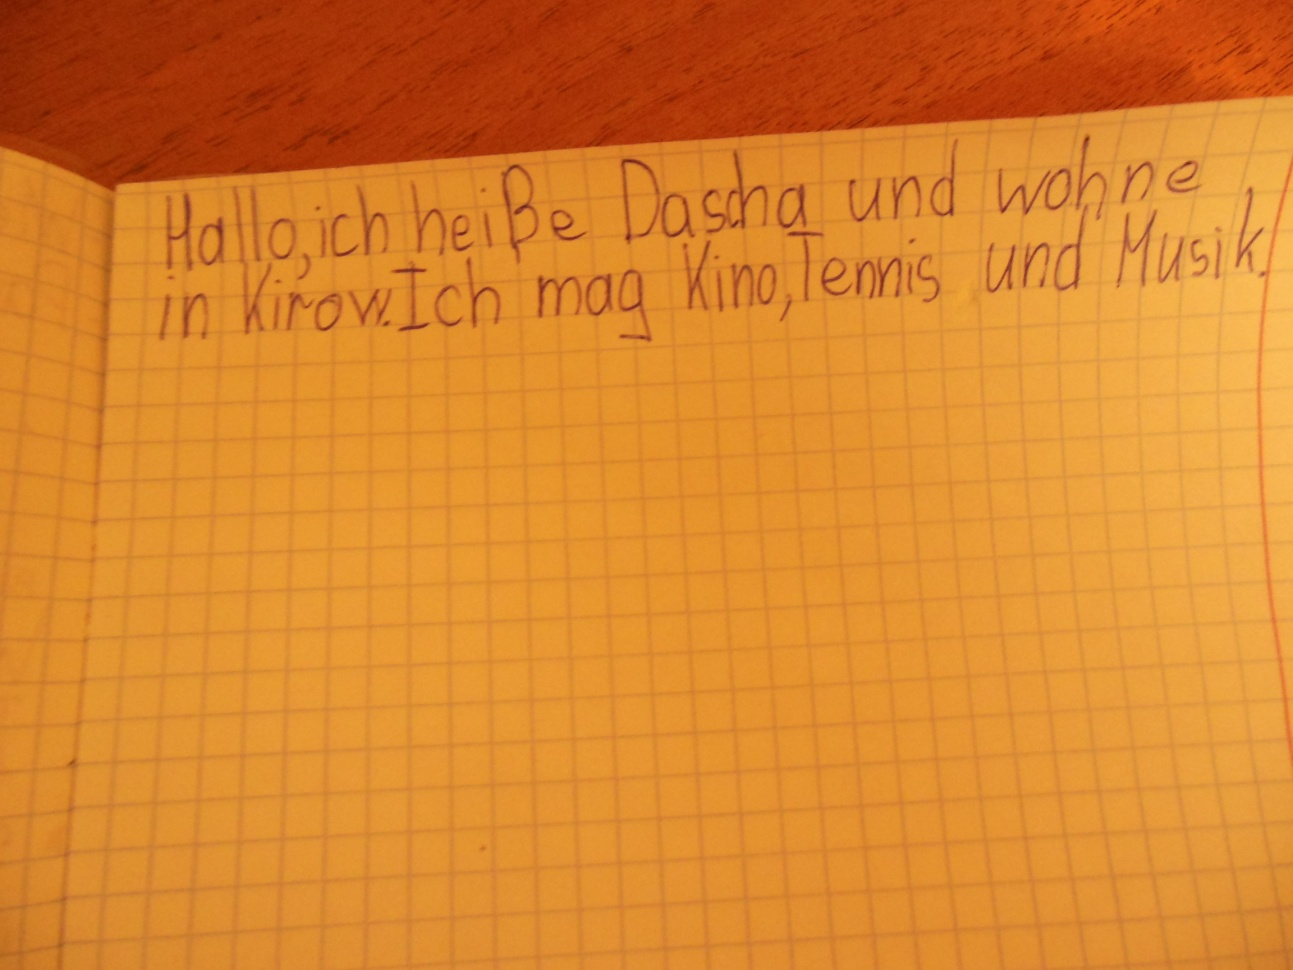 Hallo,ich heiße Dascha und wohne
in Kirow.Ich mag Kino,Tennis und Musik.